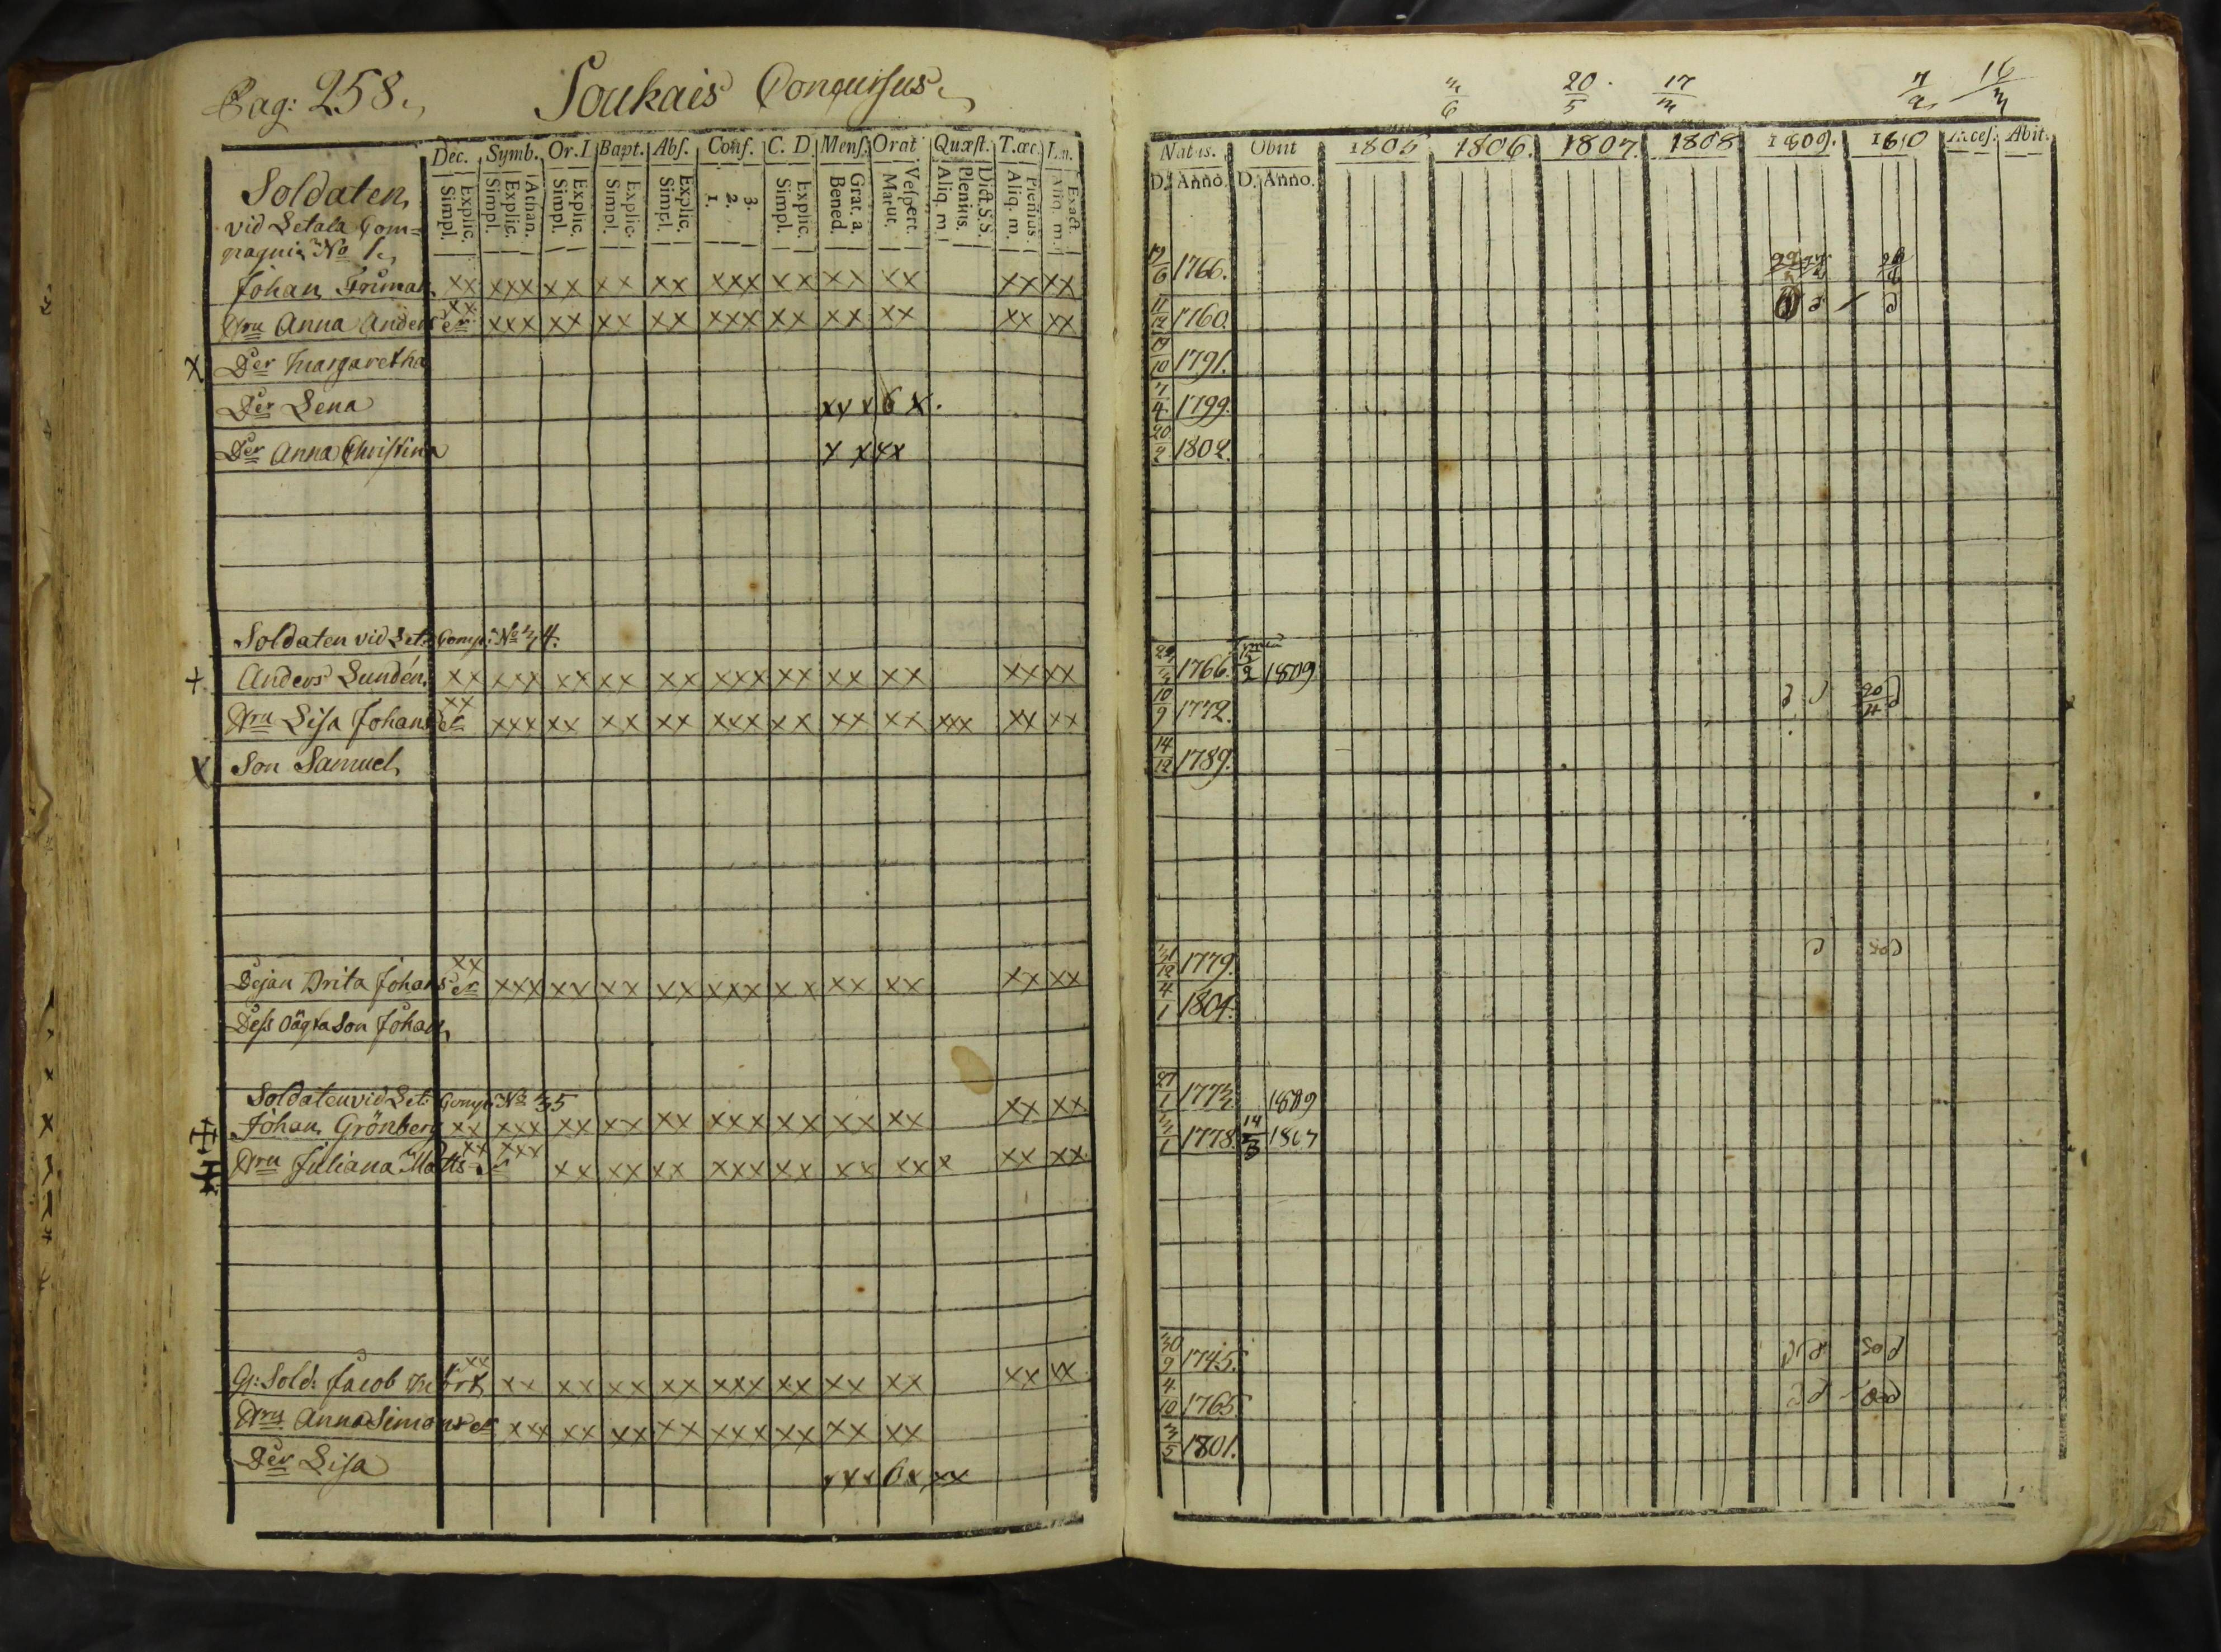 Pag: 258.
Soukais Conquisus.
Dec. Symb. Or. Bapt. Abs. Conf. C. D. Mens. Orat Quæst. T.œc.
Explic. Simpl. Athan. Explic. Simpl. Explic. Simpl. Explic. Simpl. Explic. Simpl. 3. 2. 1. Explic. Simpl. Grat. a. Bened. Vespert. Matut. Dict. S.S. Plenius. Aliq. m. Plenius. Aliq. m. Exact. Aliq. m.
Soldaten
vid Letala Com=
pagnia No 1.
Johan xx xxx xx xx xx xxx xx xx xx xx xx
Hru Anna Anders er xx xxx xx xx xx xxx xx xx xx xx xx
x Der Margaretha
Der Lena xxx 6 x.
Der Anna Christina x xxx
Soldaten vid Let: Comp: No 34.
+ Anders Lundén. xx xxx xx xx xx xxx xx xx xx xx xx
Hru Lisa Johans er xx xxx xx xx xx xxx xx xx xx xxx xx xx
x Son Samuel,
Pejan Brita Johans er xx xxx xx xx xx xxx xx xx xx xx xx
Dess oägta Son Johan,
Soldaten vid Let: Comp: No 35
Johan Grönberg xx xxx xx xx xx xxx xx xx xx xx xx
Hru Juliana Matts xx xxx xx xx xx xxx xx xx xx x xx xx
Sold: Jacob xx xx xx xx xx xxx xx xx xx xx xx
Hru Anna Simons er xxx xx xx xx xxx xx xx xx
Der Lisa xxx 6x xx
3/6 20/5 17/3 7/2 16/3
Natus. Obiit 1805 1806. 1807. 1808 1809. 1810 Acces. Abit.
D. Anno. D. Anno.
19/6 1766.
11/12 1760.
19/10 1791.
7/4 1799.
20/2 1802.
1766. 1809
10/9 1772. 20/4
14/12 1789.
31/12 1779.
4/1 1804.
27/1 1773 1809
3/1 1778 14/3 1807
30/9 1745.
4/10 1765
3/5 1801.